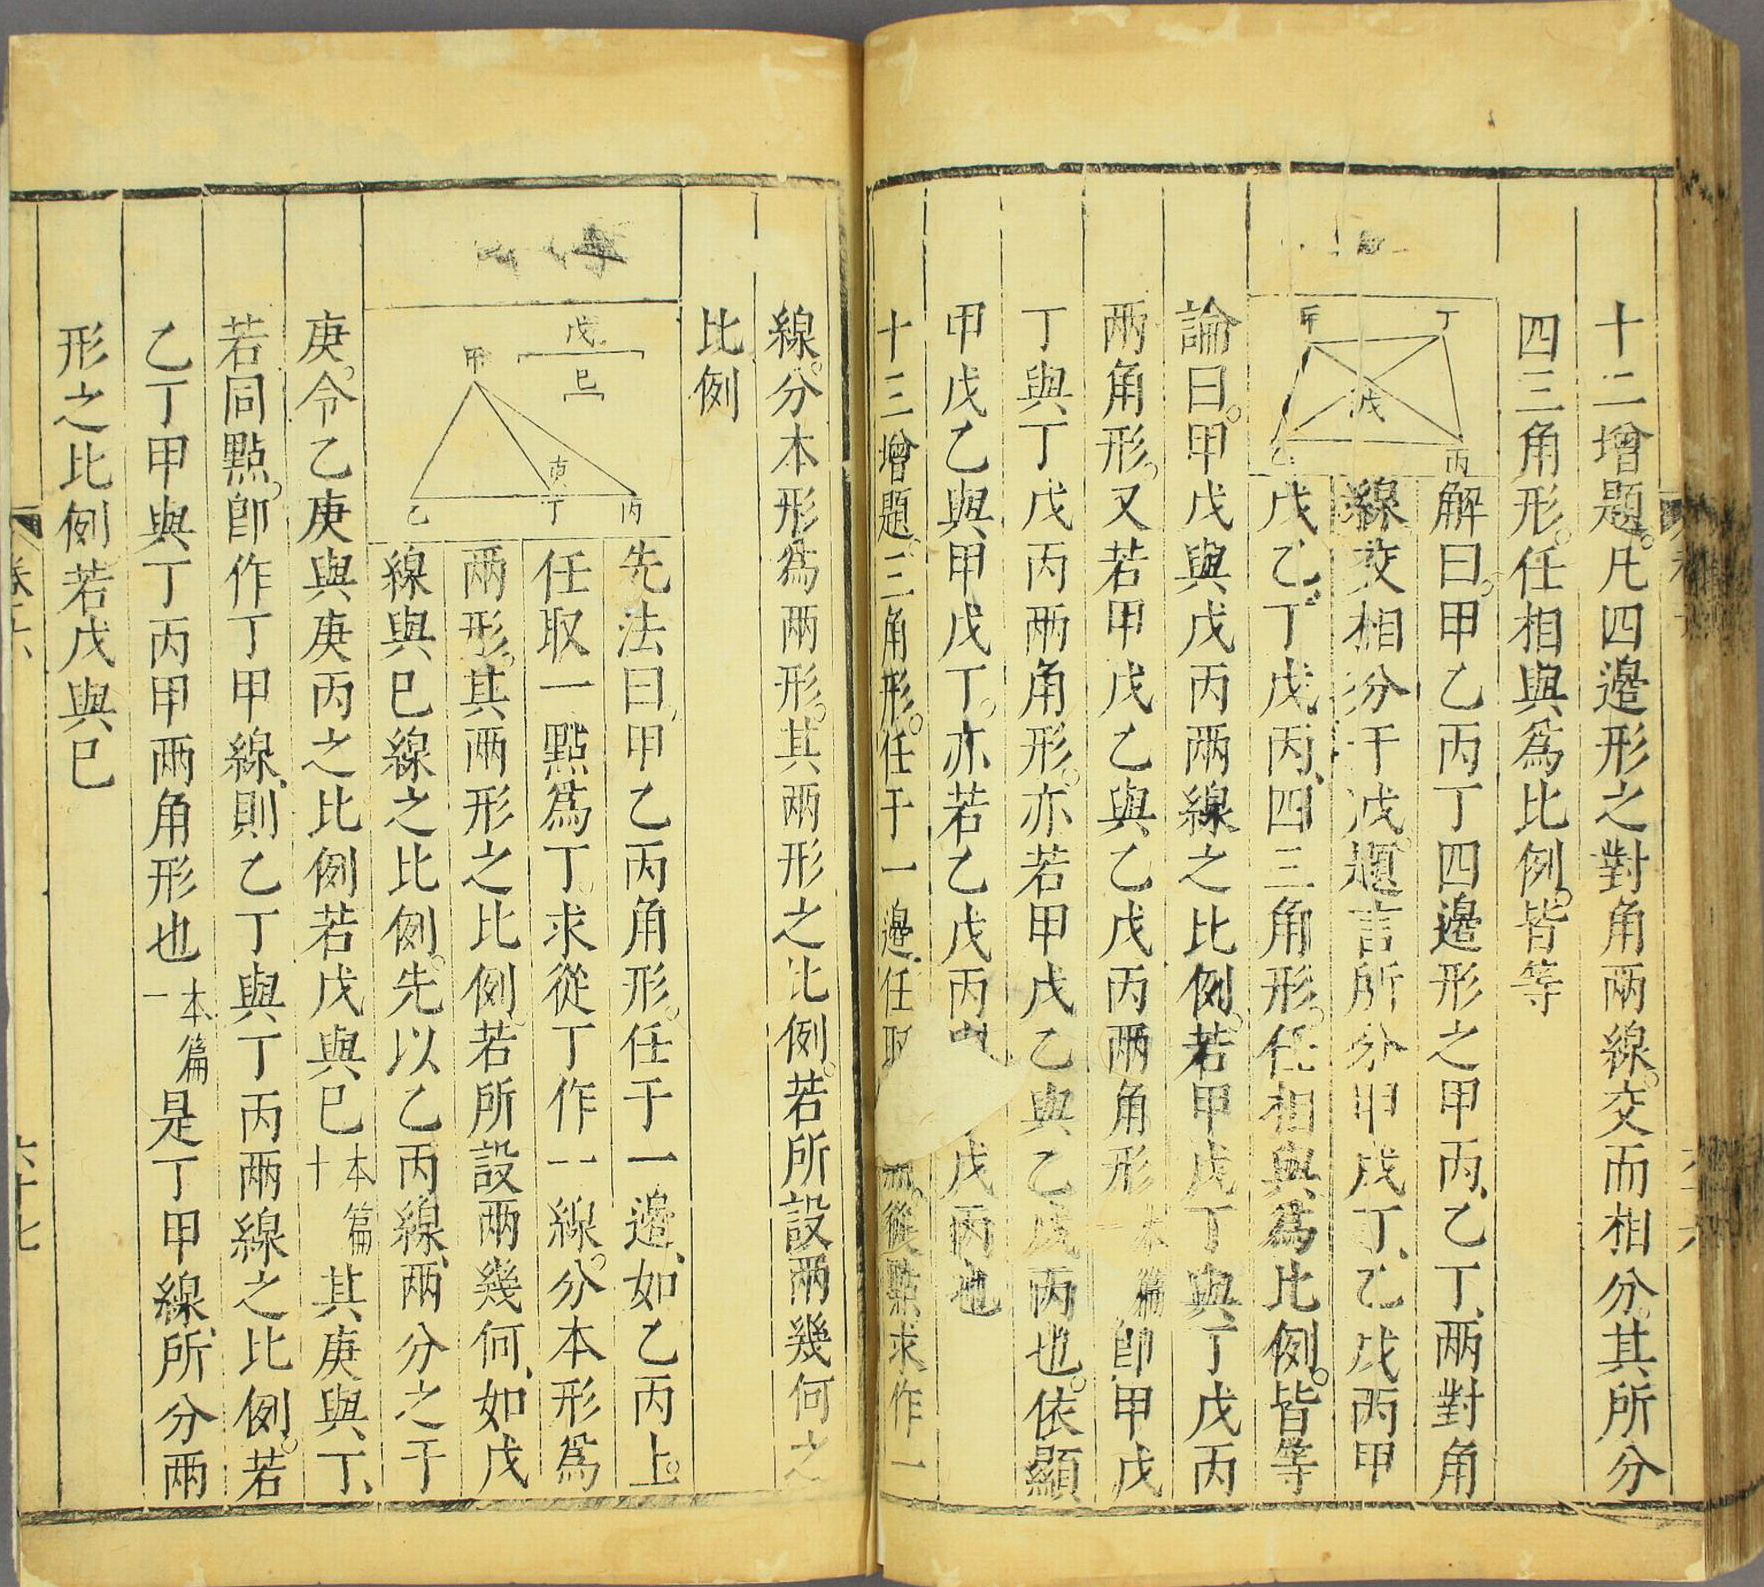 十二增題。凡四邊形之對角兩線。交而相分。其所分
四三角形。任相與為比例。皆等
甲
丁
戊
乙
丙
解曰。甲乙丙丁四邊形之甲丙、乙丁、兩對角
線交相分于戊。題言所分甲戊丁、乙戊丙甲
戊乙、丁戊丙、四三角形。任相與為比例。皆等
論曰。甲戊與戊丙兩線之比例。若甲戊丁與丁戊丙
兩角形。又若甲戊乙與乙戊丙兩角形 本篇一 卽甲戊
丁與丁戊丙兩角形。亦若甲戊乙與乙戊丙也。依顯
甲戊乙與甲戊丁。亦若乙戊丙 戊丙也
十三增題。三角形。任于一邊、任取 從點求作一
線。分本形為兩形。其兩形之比例。若所設兩幾何之
比例
戊
己
甲
庚
乙
丁
丙
先法曰、甲乙丙角形。任于一邊、如乙丙上。
任取一點為丁。求從丁作一線。分本形為
兩形。其兩形之比例。若所設兩幾何、如戊
線與己線之比例。先以乙丙線、兩分之于
庚。令乙庚與庚丙之比例若戊與己 本篇十 其庚與丁、
若同點。卽作丁甲線、則乙丁與丁丙兩線之比例。若
乙丁甲與丁丙甲兩角形也 本篇一 是丁甲線、所分兩
形之比例若戊與己
卷六
六十七